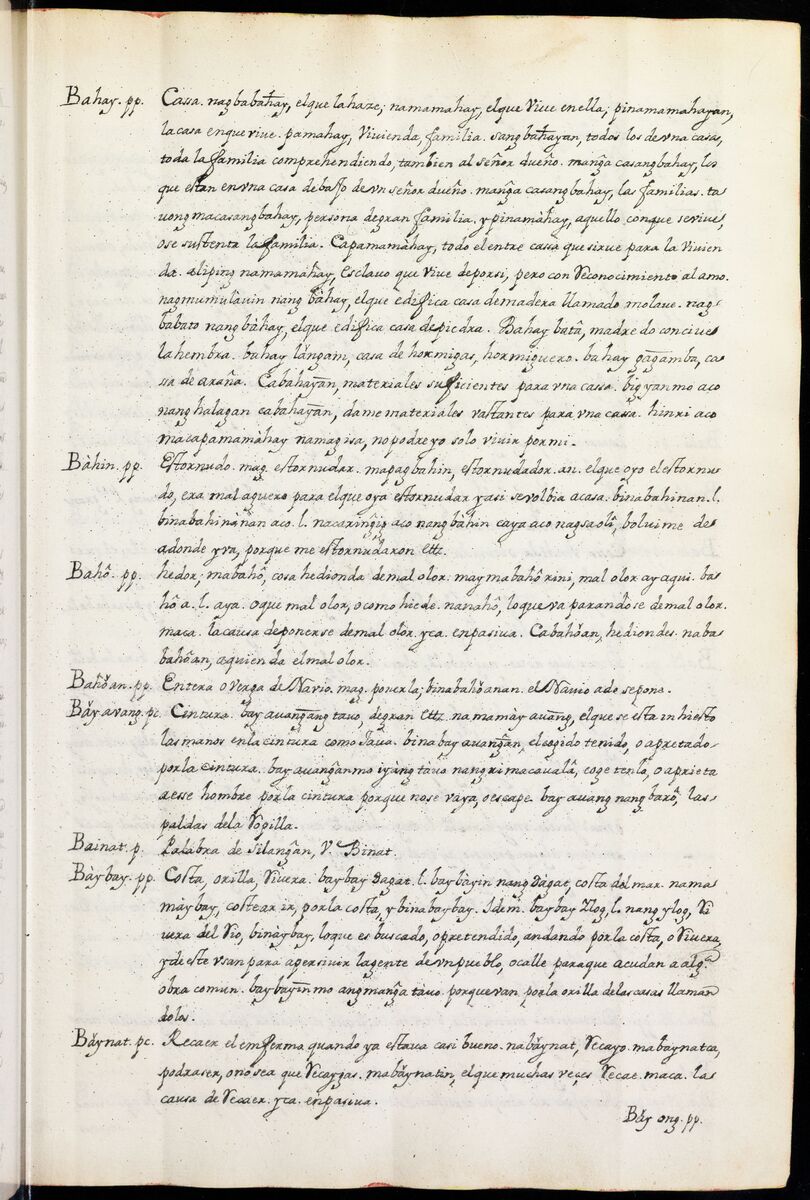 Bahay. pp. Cassa. nagbabahay, elque lahaze; namamahay, elque Vive en ella; pinamamahayan,
la casa enque vive. pamahay, Vivienda, familia. sangbahayan, todos los de vna casa,
toda la familia comprehendiendo, tambien al señor dueño. manga casangbahay, los
que estan en vna casa debaſo de vn señor dueño. manga casangbahay, las familias. ta
uong macasangbahay, persona de gran familia. ypinamàhay, aquello conque sevive,
o se sustenta la familia. Capamamàhay, todo el entre cassa que sirve para la Vivien
da. aliping namamàhay, esclauo que vive deporsi, pero con Reconocimiento al amo.
nagmumulauin nang bàhay, elque edifica casa demadera llamado molaue. nag-
babato nang bàhay, elque edifica casa depiedra. Bahay batâ, madre do concive
la hembra. bahay làngam, casa de hormigas, hormiguero. bahay gagamba, ca
sa de araña. Cabahayan, materiales suficientes para vna cassa. bigyan mo aco
nang halagan cabahayan, dame materiales vastantes para vna cassa. hinri aco
macapamamàhay namagisa, no podre yo solo vivir por mi.
Bàhin. pp. Estornudo. mag. estornudar. mapagbahin, estornudador. an. elque oyo el estornu-
do, era mal aguero para elque oya estornudar y asi se volbia a casa. binabahinan. l.
binabahinànan aco. l. nacaringig aco nang bàhin caya aco nagsaolì, bolvime de
adonde yva, porque me estornudaron Ettz.
Bahô. pp. hedor; mabahô, cosa hedionda de mal olor. may mabahô rini, mal olor ay aqui. ba-
hô a. l. aya. o que mal olor, o como hiede. nanahô, loque va parandose de mal olor.
maca. la causa deponerse de mal olor. yca. enpasiva. Cabahôan, hediondes. naba-
bahôan, aquien da el mal olor.
Bahôan. pp. Entena o verga de Navio. mag. ponerla; binabahôanan. el Navio a do se pone.
Bay avang. pc. Cintura. bay auangang tauo, de gran Ettz. namamày auang, elque se esta inhiesto
las manos en la cintura como Jaua. binabay auangan, el cogido tenido, o apretado
por la cintura. bay auanganmo iyang tàuo nangri macaualâ, coge tenlo, o aprieta
a esse hombre por la cintura porque no se vaya, o escape. bay auang nang barô, las
paldas dela Ropilla.
Bainat. p. Palabra de silangan, V. Binat.
Bàybay. pp. Costa, orilla, Rivera. baybay dagat. l. baybàyin nang dàgat, costa del mar. nama
màybay, costear ir, por la costa, y binabaybay. Idem. baybay Ylog, l. nang ylog, Ri
uera del Rio, binàybay, loque es buscado, o pretendido, andando por la costa, o Rivera,
y de este vsan para apersivir la gente de vn pueblo, o calle para que acudan a alga
obra comun. baybayinmo angmanga tauo. porque van por la orilla delas casas llaman
dolos.
Bàynat. pc. Recaer el enfermo quando ya estaua casi bueno. nabàynat, Recayo. mabaynatca,
podraser, o no sea que Recaygas. mabàynatin, elque muchas veçes Recae. maca. la
causa de Recaer. yca. enpasiva.
Bay ong. pp.